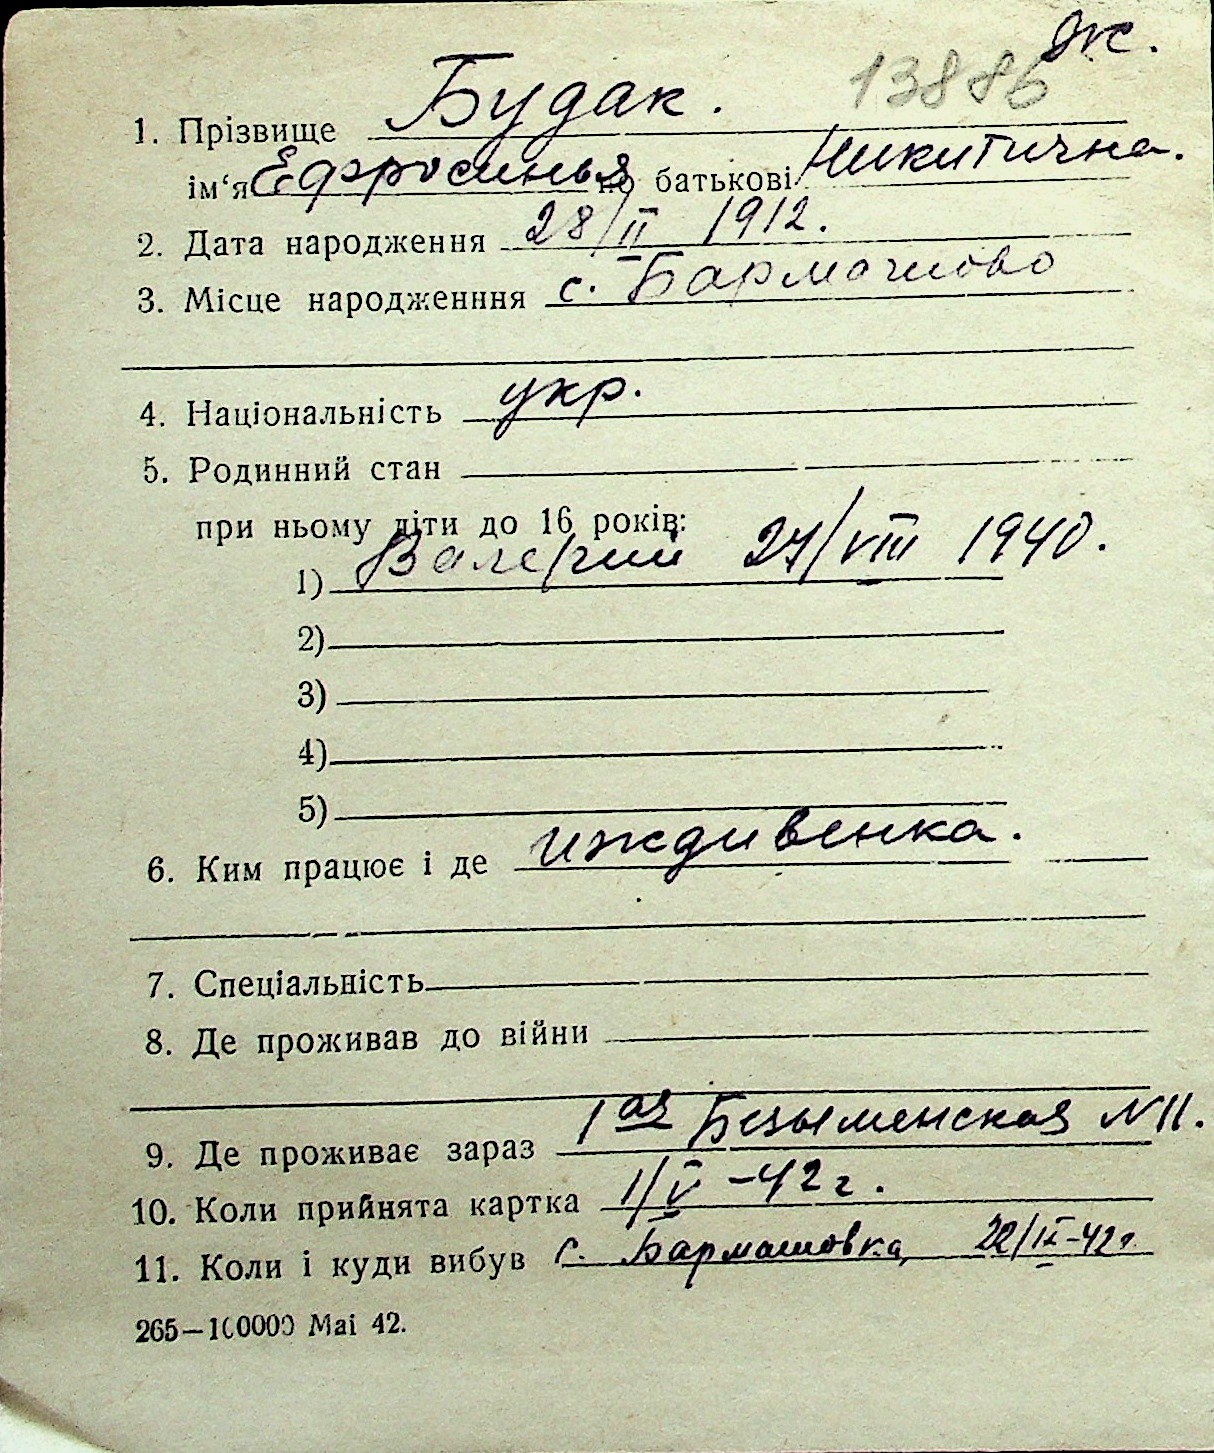 ж.
13886
1. Прізвище Будак.
ім‘я Ефросинья по батькові Никитична.
2. Дата народження 28/II 1912.
3. Місце народженння с. Бармашово
4. Національність укр.
5. Родинний стан
при ньому діти до 16 років:
1) Валерий 27/VIII 1940.
2)
3)
4)
5)
6. Ким працює і де иждивенка.
7. Спеціальність
8. Де проживав до війни
9. Де проживає зараз 1ая Безыменская N 11.
10. Коли прийнята картка 1/V -42 г.
11. Коли і куди вибув с. Бармашовка, /IX-42г.
265—100000 Маі 42.